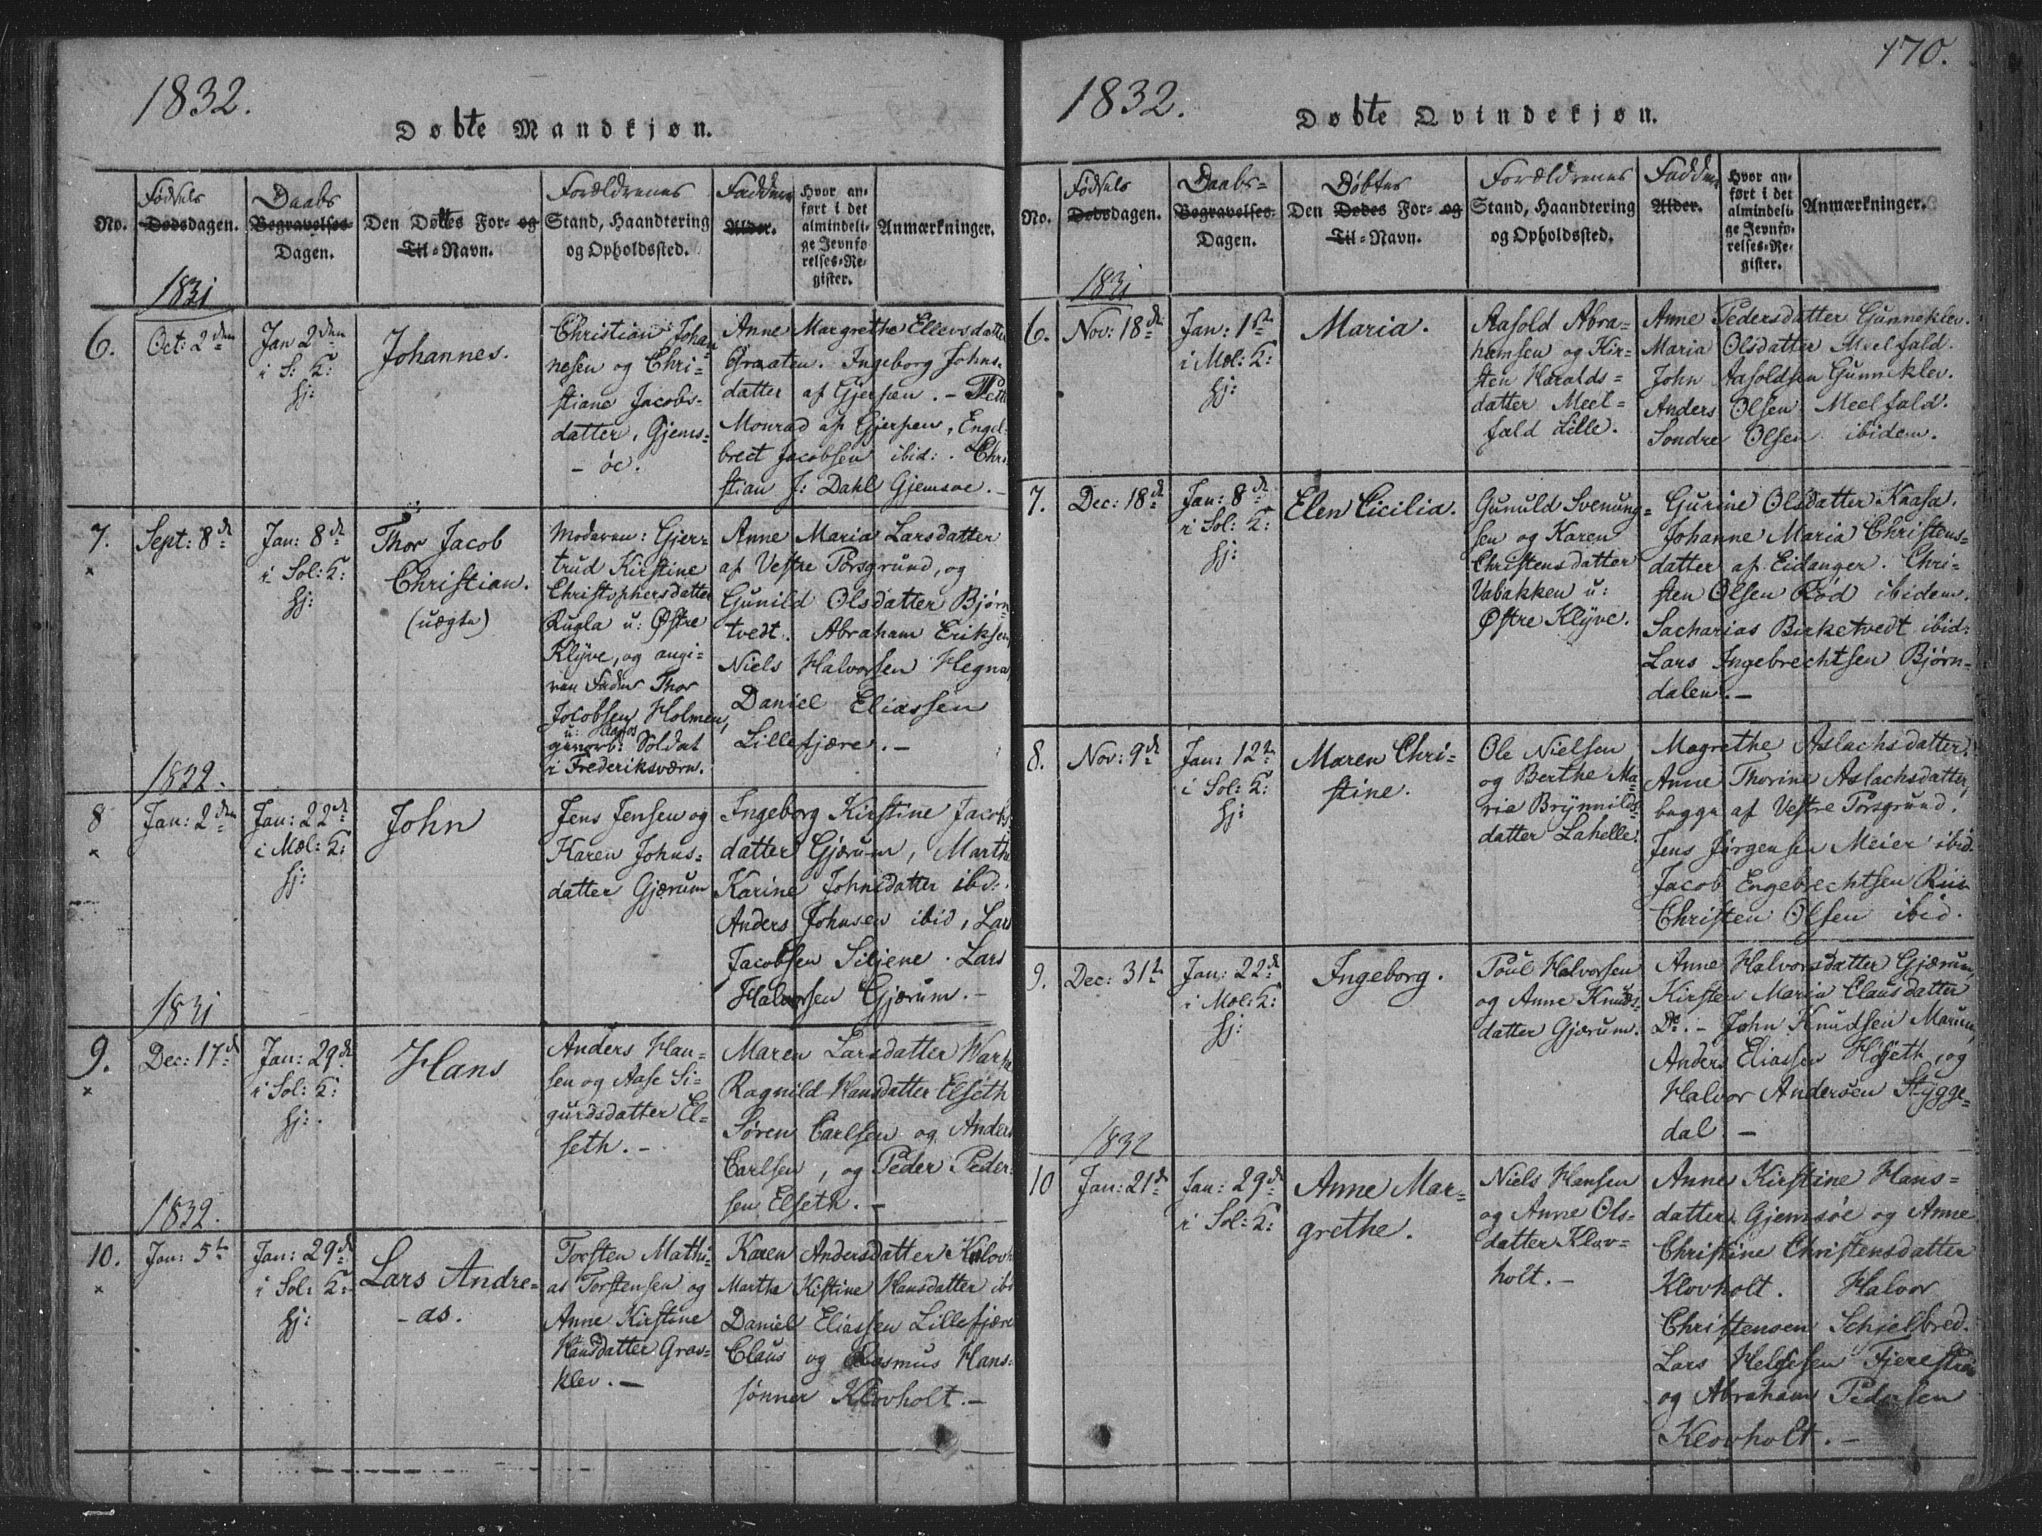 1832.
Døbte Mandkjøn.
No.
Fødsels
Dødsdagen.
Daabs
Begravelses-
Dagen.
Den Døbtes For- og
Til-Navn.
Forældrenes
Stand, Haandtering
og Opholdssted.
Faddere
Alder.
Hvor an-
ført i det
almindeli-
ge Jevnfø
relses-Re-
gister.
Anmærkninger.
1831
6.
Oct: 2den
Jan 2den
i S: K:
hj:
Johannes.
Christian Johan
nesen og Chri-
stiane Jacobs-
datter, Gjems-
- öe.
Anne Margrethe Ellevsdatter
Graaten. Ingeborg Johns-
datter af Gjerpen. - Peth
Monrad af Gjerpen, Engel-
brect Jacobsen ibid: . Chri
stian J: Dahl Gjemsøe. -
7.
Sept: 8de
Jan: 8de
i Sol: K:
hj:
Thor Jacob
Christian.
(uægte)
Moderen: Gjer-
trud Kirstine
Christophersdatter
Rugla u: Østre
Klÿve, og angi-
ven Fader Thor
Jocobsen Holmen,
u: Klapos
gevorb: Soldat
i Frederiksværn.
Anne Maria Larsdatter
af Vestre Porsgrund, og
Gunild Olsdatter Bjørn
tvedt. Abraham Eriksen,
Niels Halvorsen Hegna,
Daniel Eliassen
Lillefjære. -
1832.
8
Jan: 2den
Jan: 22de
i Mæl: K:
hj:
John
Jens Jensen og
Karen Johns-
datter Gjærum
Ingeborg Kirstine Jacobs-
datter Gjærum, Marthe
Karine Johnsdatter ibd:.
Anders Johnsen ibid, Lars
Jacobsen Siljene. Lars
Halvorsen Gjærum. -
1831
9.
Dec: 17de
Jan: 29de
i Sol: K:
hj:
Hans
Anders Han-
sen og Aase Si-
gurdsdatter El-
seth. -
Maren Larsdatter
Ragnild Hansdatter Elseth
Søren Carlsen og Anders
Carlsen, og Peder Peder-
sen Elseth. -
1832.
10.
Jan: 5te
Jan: 29de
i Sol: K:
hj:
Lars Andre-
- as.
Torsten Mathi-
as Torstensen og
Anne Kirstine
Hansdatter Grav-
klev. -
Karen Andersdatter Klovh
Martha Kistine Hansdatter ibi
Daniel Eliassen Lillefjære
Claus og Rasmus Hans-
sønner Klovholt. -
170.
1832.
Døbte Qvindekjøn.
No.
Fødsels
Dødsdagen.
Daabs-
Begravelses-
Dagen.
Døbtes
Den Dødes For- og
Til-Navn.
Forældrenes
Stand, Haandtering
og Opholdssted.
Faddere
Alder.
Hvor an-
ført i det
almindeli-
ge Jevnfø-
relses-Re-
gister.
Anmærkninger.
1831
6.
Nov: 18de
Jan: 1ste
i Mæl: K:
hj:
Maria.
Aasold Abra-
hamsen og Kir-
sten Haralds-
datter Meel-
fald Lille.
Anne Pedersdatter Gunneklev.
Maria Olsdatter Meelfald.
John Aasoldsen Gunneklev.
Anders Olsen Meelfald.
Sondre Olsen ibidem.
7.
Dec: 18de
Jan: 8de
i Sol: K:
hj:
Elen Cicilia.
Gunuld Svenung-
sen og Karen
Christensdatter
Vabakken u:
Østre Klÿve.
Gurine Olsdatter Kaasa.
Johanne Maria Christens-
datter af Eidanger. Chri-
sten Olsen Rød ibidem.
Sacharias Birketvedt ibid:
Lars Ingebrechtsen Bjørn-
dalen. -
8.
Nov: 9de
Jan: 12te
i Sol: K:
hj:
Maren Chri-
stine.
Ole Nielsen
og Berthe Ma-
rie Brÿnnilds-
datter Lahelle.
Magrethe Aslachsdatter.
Anne Thorine Aslachsdatter,
begge af Vestre Porsgrund.
Jens Jürgensen Meier ibid.
Jacob Engebrechtsen Riis
Christen Olsen ibid.
9.
Dec: 31te
Jan: 22de
i Mæl: K:
hj:
Ingeborg.
Poul Halvorsen
og Anne Knuds-
datter Gjærum.
Anne Halvorsdatter Gjærum,
Kirsten Maria Clausdatter
Do. - John Knudsen Marum,
Anders Eliassen Hoseth, og
Halvor Andersen Stÿgge-
dal. -
1832
10
Jan: 21de
Jan: 29de
i Sol: K:
Anne Mar-
grethe.
Niels Hansen
og Anne Ols-
datter Klov-
holt. -
Anne Kirstine Hans-
datter Gjemsøe og Anne
Christine Christensdatter
Klovholt. Halvor
Christensen Schielbred.
Lars Helgesen Fjerestran
og Abraham Pedersen
Klovholt. -